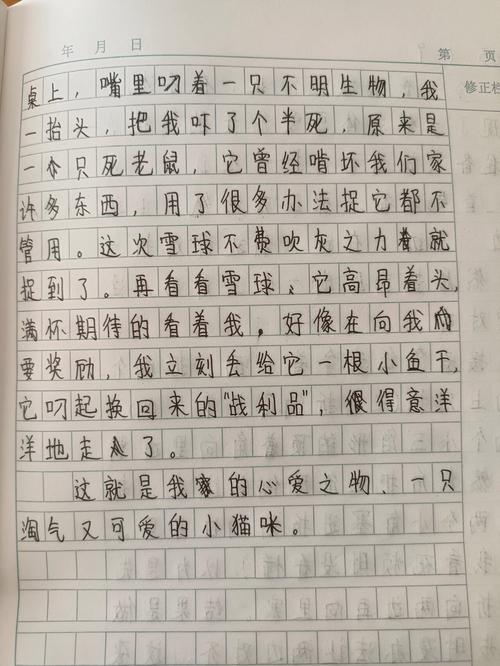 年 月 日
第 页
修正栏
桌上，嘴里叼着一只不明生物，我
一抬头，把我吓了个半死，原来是
一个只死老鼠，它曾经啃坏我们家
许多东西，用了很多办法捉它都不
管用。这次雪球不费吹灰之力就
捉到了。再看看雪球、它高昂着头，
满杯期待的看着我。好像在向我
要奖励，我立刻丢给它一根小鱼干，
它叼起换回来的“战利品”，很得意洋
洋地走了。
这就是我家的心爱之物、一只
淘气又可爱的小猫咪。